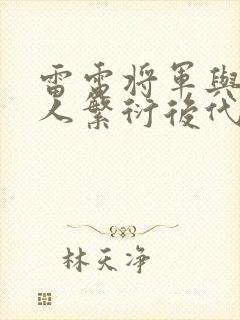 雷雷将軍與
人繁衍後代
林天净